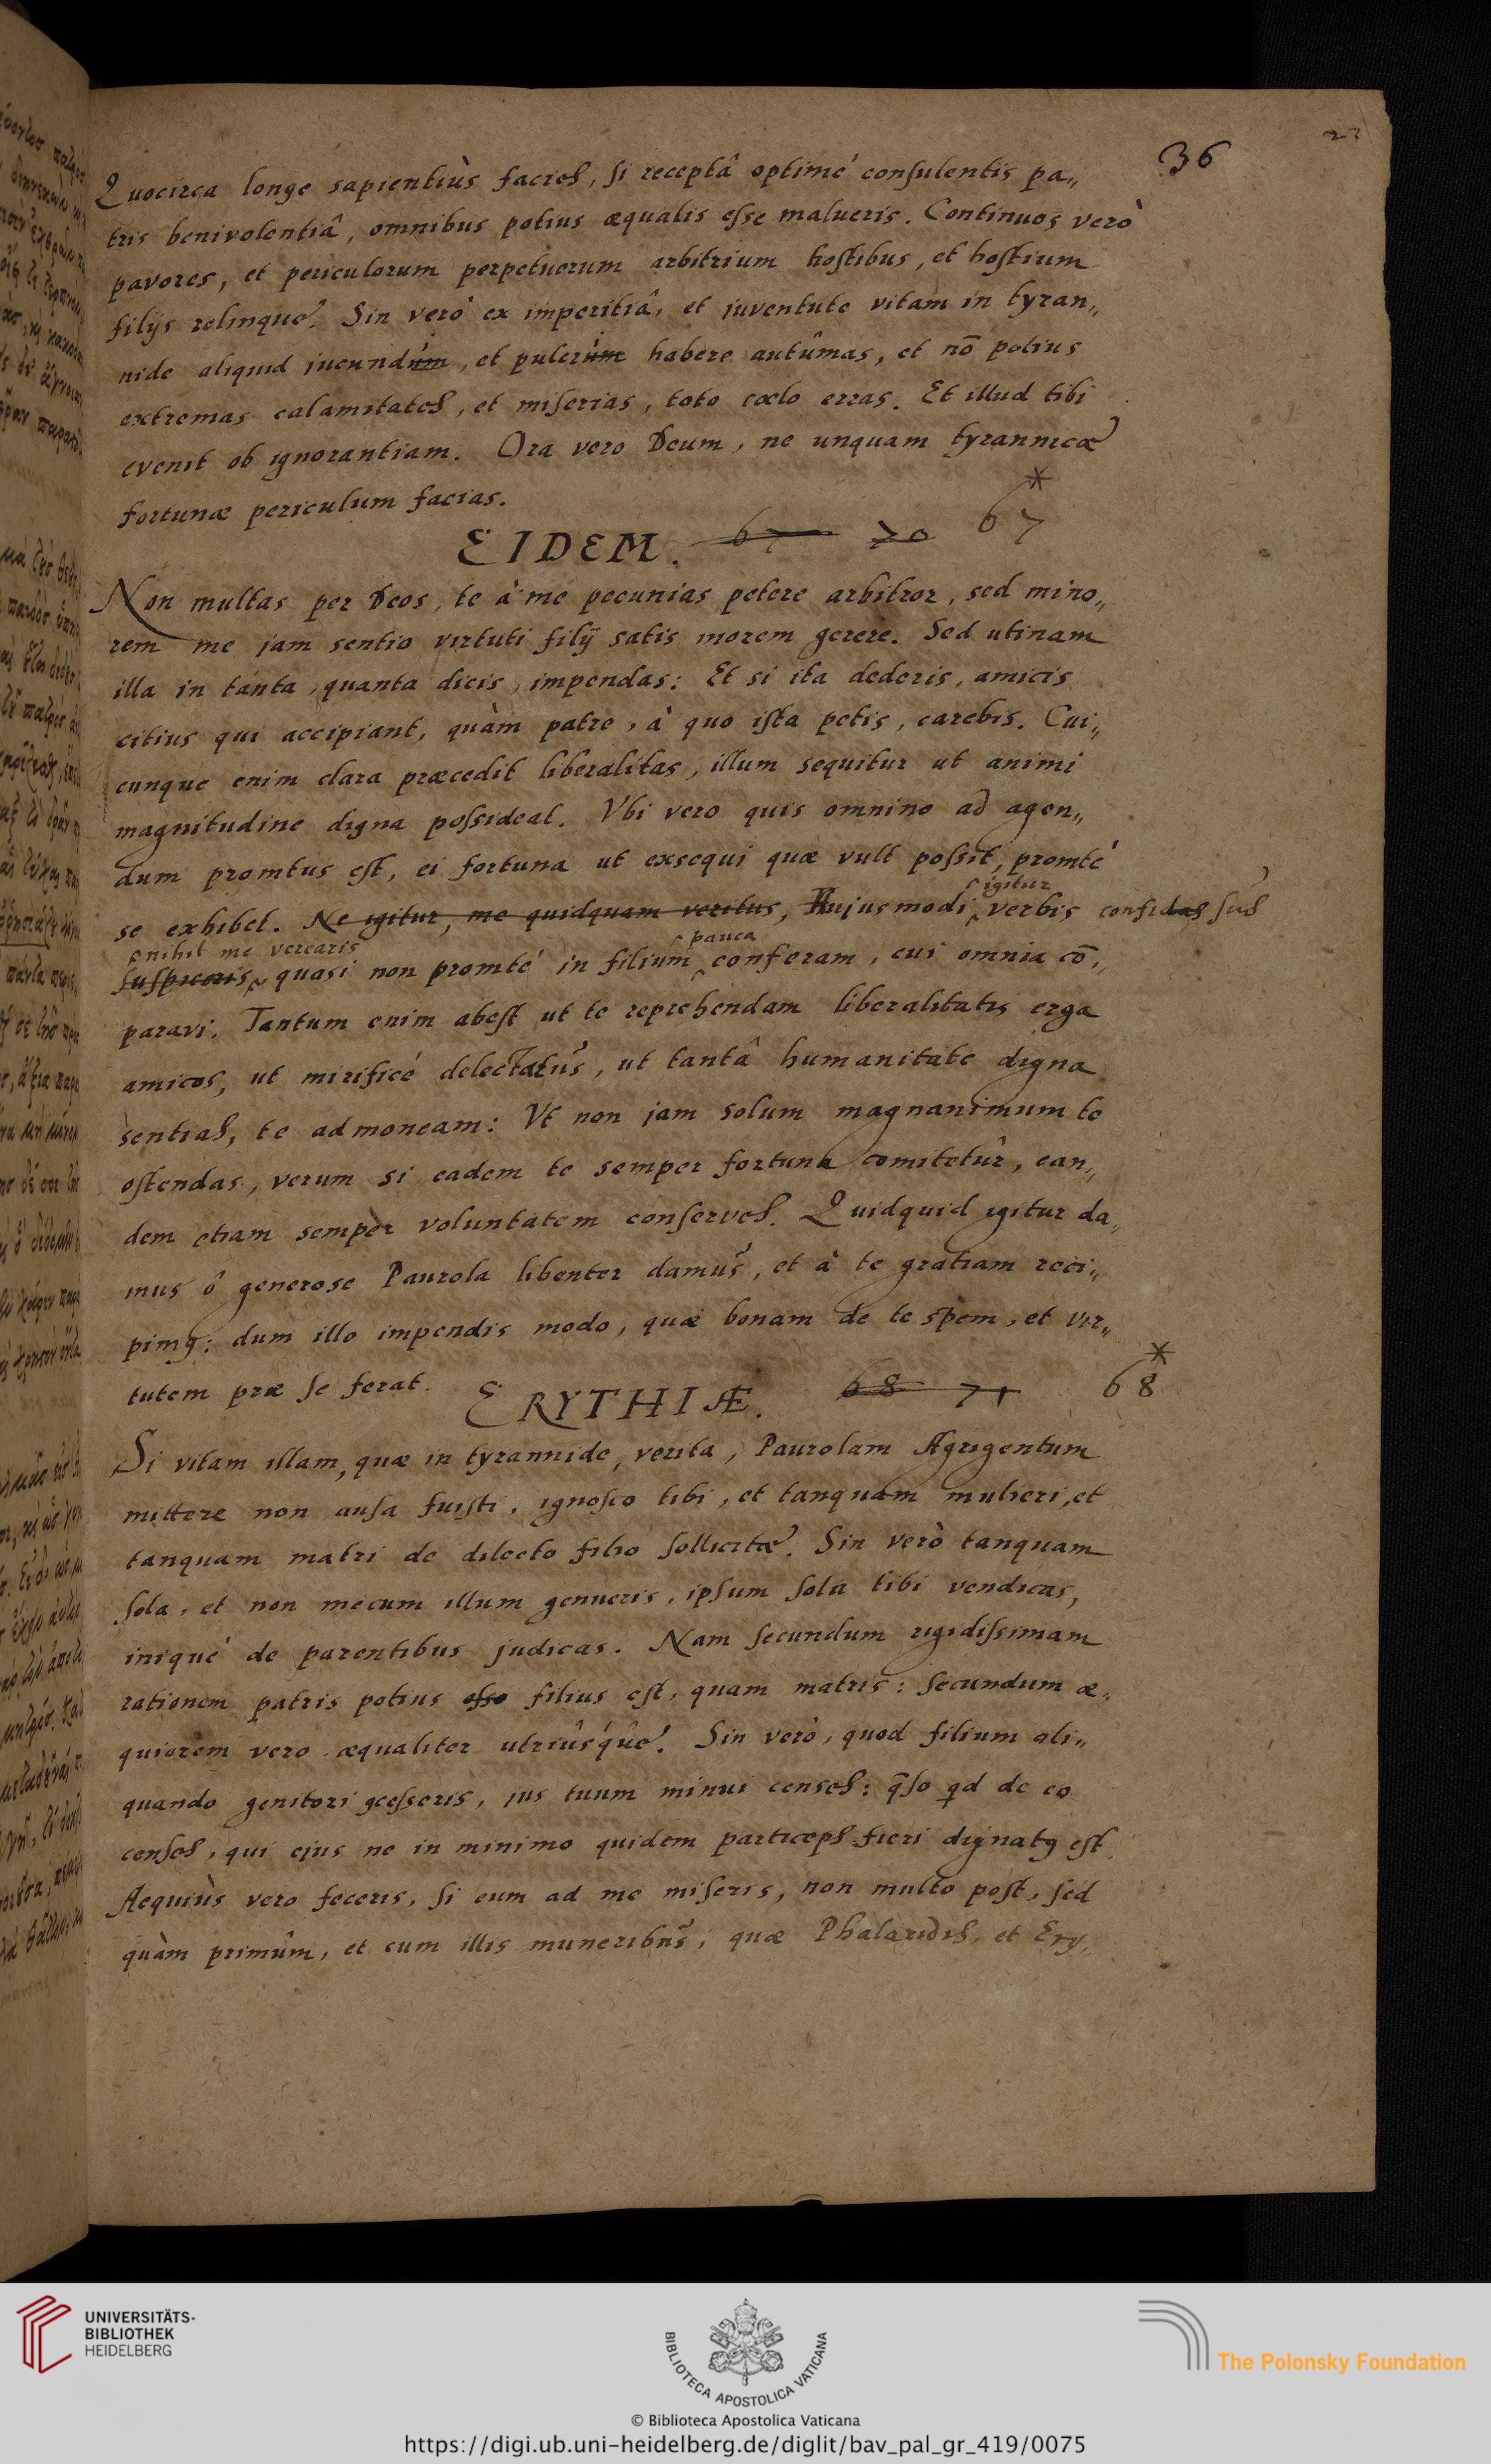 23
36
Quocirca longe sapientiùs facies, si receptâ optimé consulentis pa„
tris benivolentiâ, omnibus potius æqualis esse malueris. Continuos verò
pavores, et periculorum perpetuorum arbitrium hostibus, et hostium
filijs relinque. Sin verò ex imperitiâ, et juventute vitam in tyran„
nide aliquid jucundúm, et pulcrúm habere autûmas, et nō potius
extremas calamitates, et miserias, toto cœlo erras. Et illud tibi
evenit ob ignorantiam. Ora vero Deum, ne unquam tyrannicæ
fortunæ periculum facias.
EIDEM. 67 70 67 *
Non multas per Deos, te à me pecunias petere arbitror, sed mino„
rem me jam sentio virtuti filij satis morem gerere. Sed utinam
illa in tanta, quanta dicis, impendas: Et si ita dederis, amicis
citius qui accipiant, quàm patre, à quo ista petis, carebis. Cui„
cunque enim clara præcedit liberalitas, illum sequitur ut animi
magnitudine digna possideat. Vbi vero quis omnino ad agen„
dum promtus est, ei fortuna ut exsequi quæ vult possit, promté
igitur
se exhibet. Ne igitur, me quidquam veritus, Hujusmodi verbis confidas
nihil me verearis pauca
suspiceris, quasi non promté in filium conferam, cui omnia cō„
paravi. Tantum enim abest ut te reprehendam liberalitatis erga
amicos, ut mirificé delectatus, ut tantâ humanitate digna
sentias, te admoneam: Vt non jam solum magnanimum te
ostendas, verum si eadem te semper fortuna comitetûr, ean„
dem etiam semper voluntatem conserves. Quidquid igitur da„
mus ô generose Paurola libenter damus, et à te gratiam reci„
pimꝯ: dum illo impendis modo, quæ bonam de te spem, et vir„
tutem præ se ferat.
ERYTHIÆ. 68 71 68 *
Si vitam illam, quæ in tyrannide, verita, Paurolam Agrigentum
mittere non ausa fuisti, ignosco tibi, et tanquam mulieri, et
tanquam matri de dilecto filio sollicitæ. Sin verò tanquam
sola, et non mecum illum genueris, ipsum sola tibi vendicas,
iniqué de parentibus judicas. Nam secundum rigidissimam
rationem patris potius esse filius est, quam matris: secundum æ„
quiorem vero æqualiter utriûsque. Sin verò, quod filium ali„
quando genitori ꝯcesseris, jus tuum minui censes: q̄so qd de eo
censes, qui ejus ne in minimo quidem particeps fieri dignatꝯ est.
Aequiùs vero feceris, si eum ad me miseris, non multo post, sed
quàm primûm, et cum illis muneribus, quæ Phalaridis, et Ery„
UNIVERSITÄTS-
BIBLIOTHEK
HEIDELBERG
BIBLIOTECA APOSTOLICA VATICANA
The Polonsky Foundation
© Biblioteca Apostolica Vaticana
https://digi.ub.uni-heidelberg.de/diglit/bav_pal_gr_419/0075